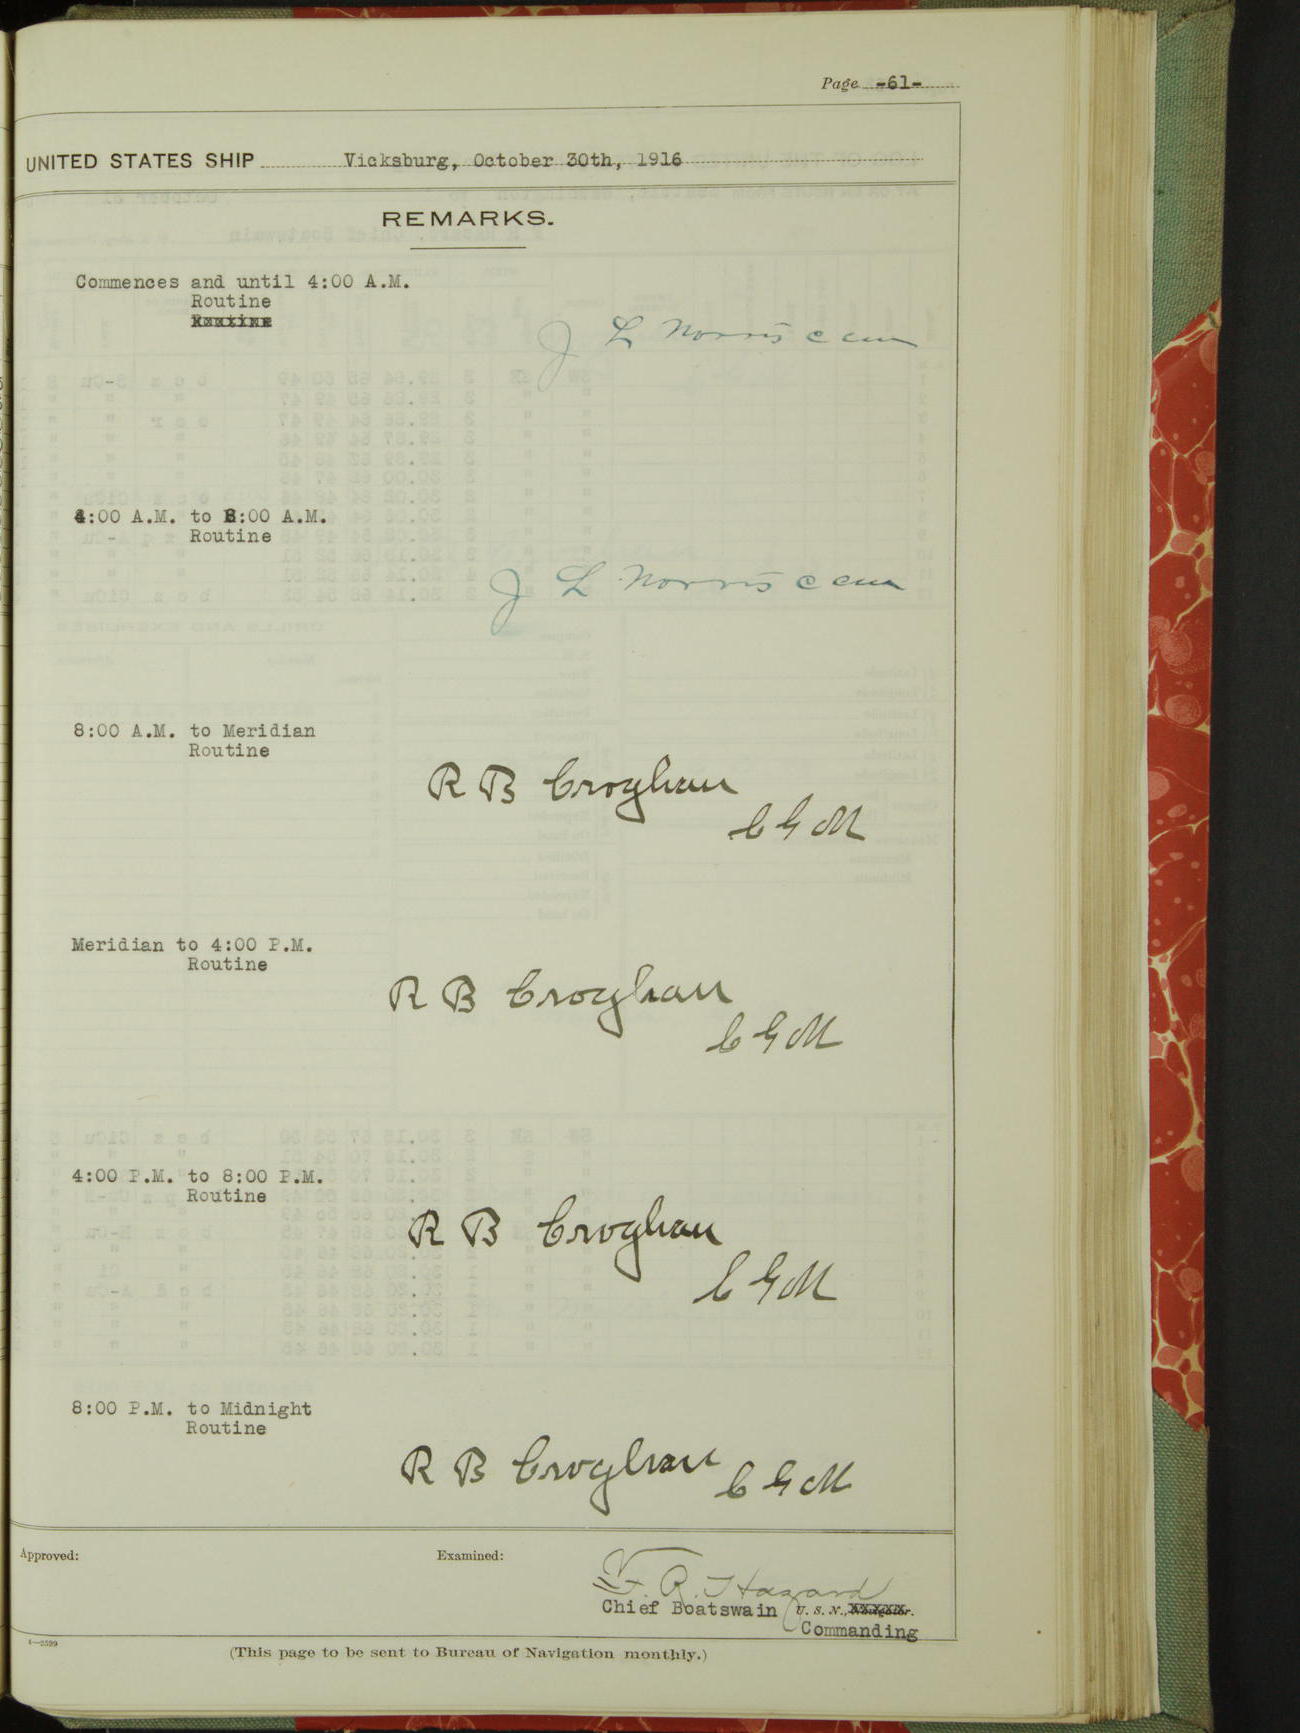 Page -61-
UNITED STATES SHIP Vicksburg, October 30th, 1916
REMARKS.
Commences and until 4:00 A.M.
Routine
Routine
J L Norris c cm
4:00 A.M. to 8:00 A.M.
Routine
J L Norris c cm
8:00 A.M. to Meridian
Routine
R B Croghan
C G M
Meridian to 4:00 P.M.
Routine
R B Croghan
C G M
4:00 P.M. to 8:00 P.M.
Routine
R B Croghan
C G M
8:00 P.M. to Midnight
Routine
R B Croghan C G M
Approved:
Examined:
F. R. Hazard
Chief Boatswain U. S. N., Navigator.
Commanding
(This page to be sent to Bureau of Navigation monthly.)